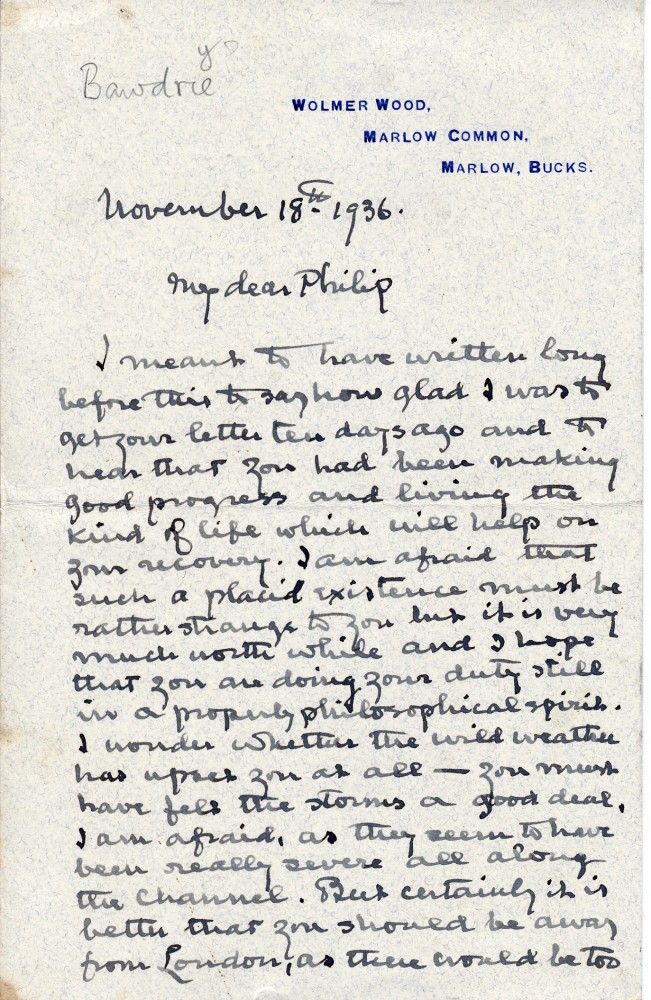 Bawdrie
ys
WOLMER WOOD,
MARLOW COMMON,
MARLOW, BUCKS.
November 18th 1936.
My dear Philip
I meant to have written long
before this to say how glad I was to
get your letter ten days ago and to
hear that you had been making
good progress and living the
kind of life which will help on
your recovery. I am afraid that
such a placid existence must be
rather strange to you but it is very
much worth while and I hope
that you are doing your duty still
in a properly philosophical spirit.
I wonder whether the wild weather
has upset you at all — you must
have felt the storms a good deal,
I am afraid, as they seem to have
been really severe all along
the Channel. But certainly it is
better that you should be away
from London, as there would be too